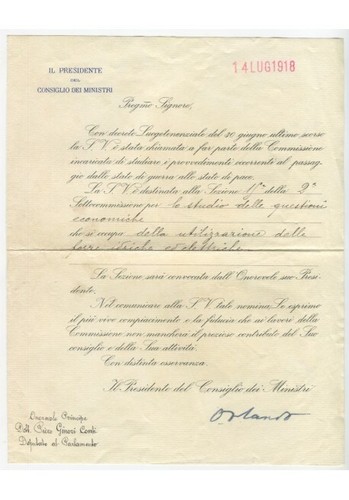 IL PRESIDENTE
DEL
CONSIGLIO DEI MINISTRI
14 LUG 1918
Pregmo Signore,
Con decreto Luogotenenziale del 30 giugno ultimo scorso
la S. V. è stata chiamata a far parte della Commissione
incaricata di studiare i provvedimenti occorrenti al passag-
gio dallo stato di guerra allo stato di pace.
La S. V. è destinata alla Sezione 11ª della 2ª
Sottocommissione per lo studio delle questioni
economiche
che si occupa della utilizzazione delle
forze idriche ed elettriche
La Sezione sarà convocata dall'Onorevole suo Presi-
dente.
Nel comunicare alla S. V. tale nomina, Le esprimo
il più vivo compiacimento e la fiducia che ai lavori della
Commissione non mancherà il prezioso contributo del Suo
consiglio e della Sua attività.
Con distinta osservanza.
Il Presidente del Consiglio dei Ministri
Orlando
Onorevole Principe
Dott. Piero Ginori Conti
Deputato al Parlamento